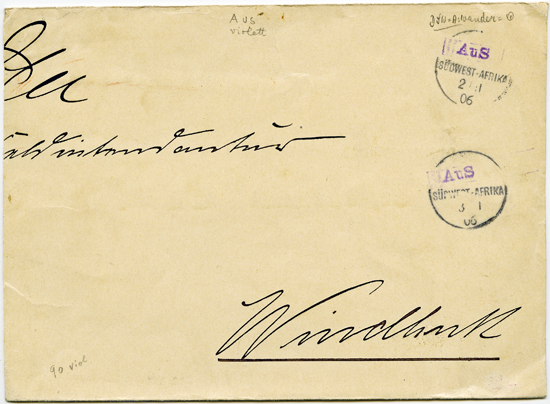 Aus
violett
AUS
SÜDWEST-AFRIKA
2 1
06
Der
Feldintendantur
AUS
SÜDWEST-AFRIKA
3 1
06
Windhuk
90 viol